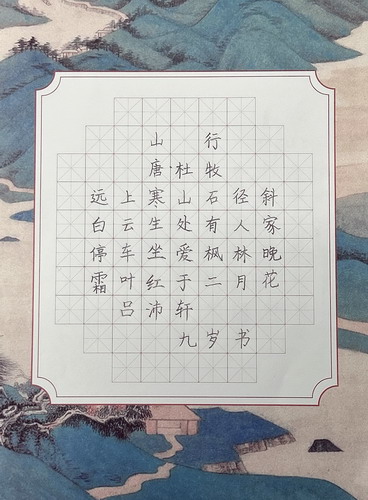 山行
唐·杜牧
远上寒山石径斜
白云生处有人家
停车坐爱枫林晚
霜叶红于二月花
吕沛轩
九岁书